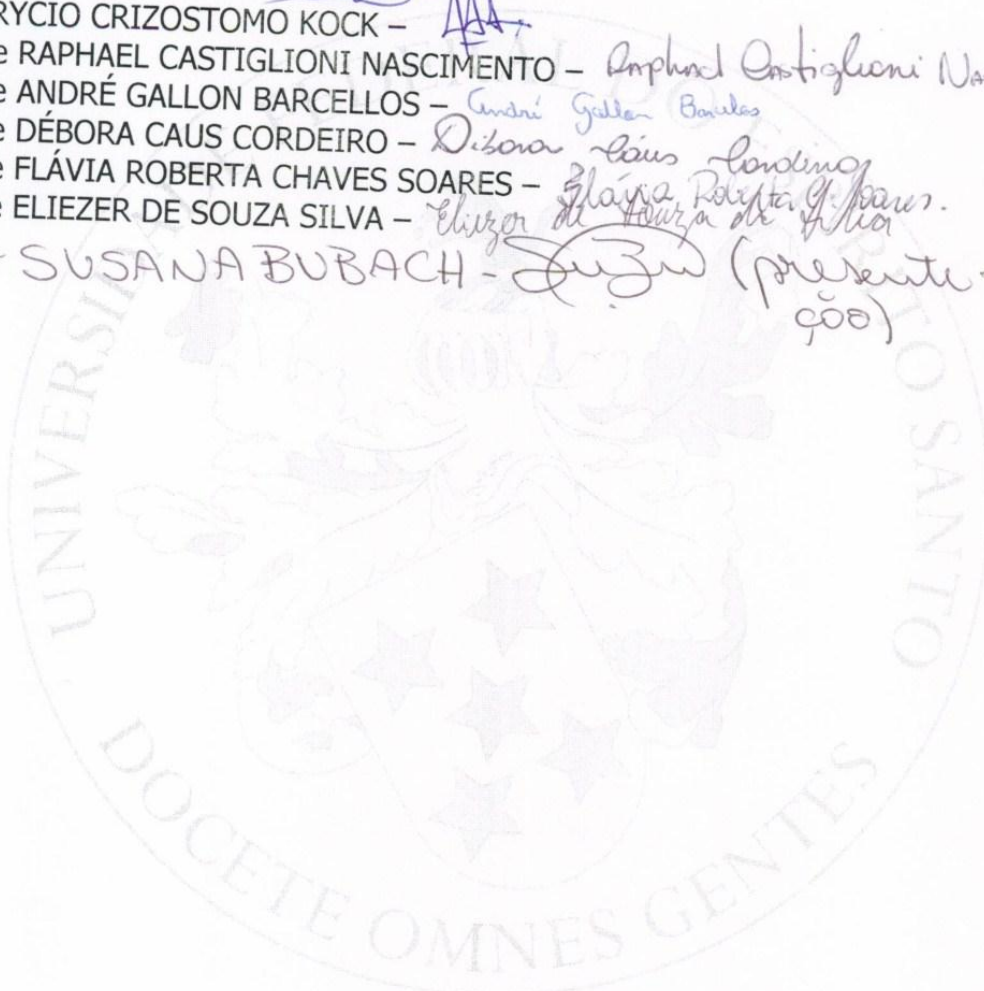 RYCIO CRIZOSTOMO KOCK –
e RAPHAEL CASTIGLIONI NASCIMENTO – Raphael Castiglioni Na
e ANDRÉ GALLON BARCELLOS – André Gallon Barcelos
e DÉBORA CAUS CORDEIRO – Débora Caus Cordeiro
e FLÁVIA ROBERTA CHAVES SOARES – Flávia Roberta C. Soares.
e ELIEZER DE SOUZA SILVA – Eliezer de Souza da Silva
- SUSANA BUBACH - (presente
ções)
UNIVERSIDADE FEDERAL DO ESPÍRITO SANTO
DOCETE OMNES GENTES